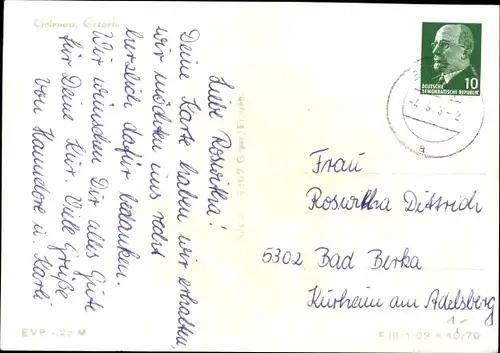 Liebe Roswitha!
Deine Karte haben wir erhalten,
wir möchten uns recht
herzlich dafür bedanken.
Wir wünschen Dir alles Gute
für Deine Kur. Viele Grüße
von Hannelore u. Karli
10
DEUTSCHE
DEMOKRATISCHE REPUBLIK
Frau
Roswitha Dittrich
5302 Bad Berka
Kurheim am Adelsberg
1,-
EVP -,20 M